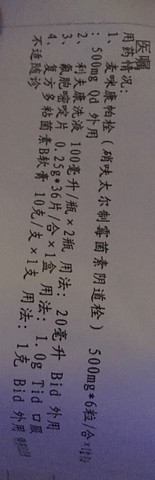 医嘱
用药情况:
1、麦咪康帕栓(硝呋太尔制霉菌素阴道栓) 500mg*6粒/合
:500mg Qd 外用
2、利夫康洗液 100毫升/瓶×2瓶 用法: 20毫升 Bid 外用
3、氟胞嘧啶片 0.25g*36片/合×1盒 用法: 1.0g Tid 口服
4、复方多粘菌素B软膏 10克/支×1支 用法: 1克 Bid 外用
不适随诊